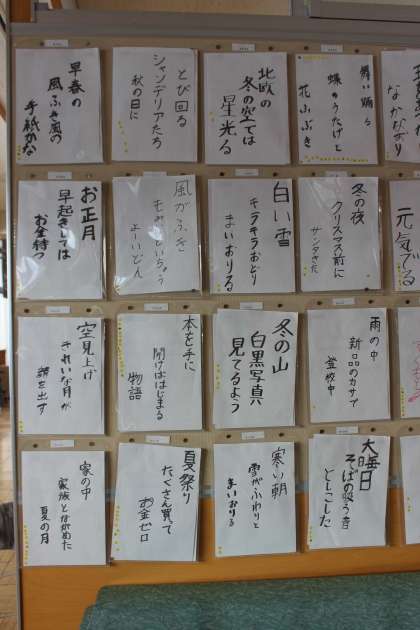 なかなおり
舞い踊る
蝶のうたげと
花ふぶき
北欧の
冬の空では
星光る
とび回る
シャンデリアたち
秋の日に
早春の
手紙かな
元気でる
冬の夜
クリスマス前に
サンタきた
白い雪
キラキラおどり
まいおりる
風がふき
もみじといちょう
よーいどん
お正月
早起きしては
お金待つ
雨の中
新品のカサで
登校中
冬の山
白黒写真
見てるよう
本を手に
開けばはじまる
物語
空見上げ
きれいな月が
顔を出す
大晦日
そばの吸う音
寒い朝
雪がふわりと
まいおりる
夏祭り
たくさん買て
お金ゼロ
家の中
家族とながめた
夏の月